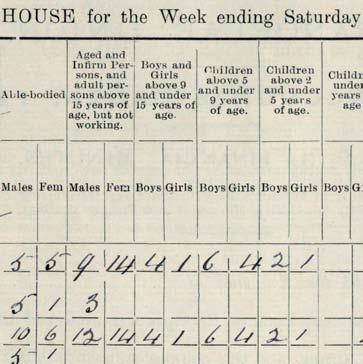 HOUSE for the Week ending Saturday
Able-bodied
Aged and
Infirm Per-
sons, and
adult per-
sons above
15 years of
age, but not
working.
Boys and
Girls
above 9
and under
15 years of
age.
Children
above 5
and under
9 years
of age.
Children
above 2
and under
5 years of
age.
Males Fem Males Fem Boys Girls Boys Girls Boys Girls Boys
5 5 9 14 4 1 6 4 2 1
5 1 3
10 6 12 14 4 1 6 4 2 1
5 1